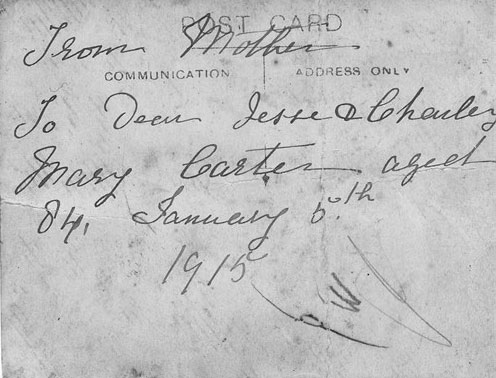 POST CARD
From Mother
COMMUNICATION ADDRESS ONLY
To Dear Jesse & Charley
Mary Carter aged
84, January 5th
1915
W